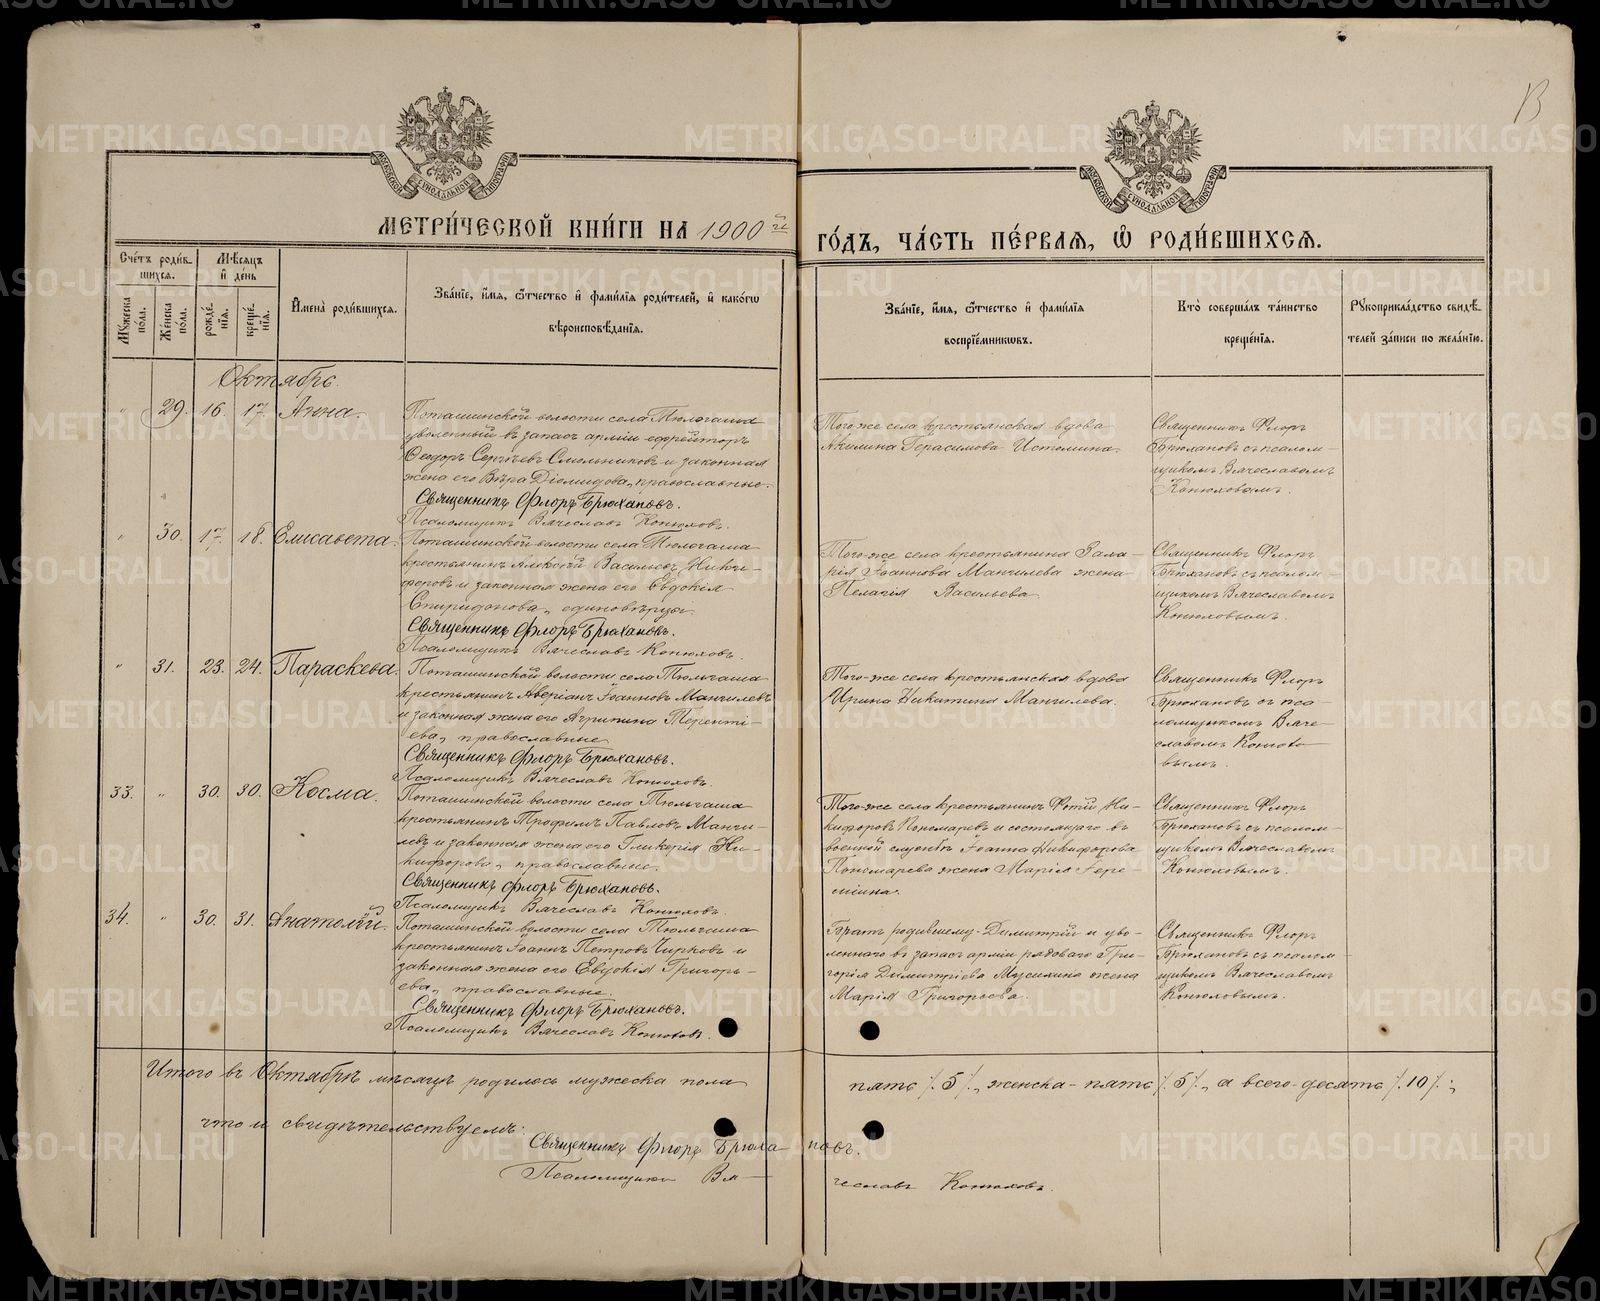 МЕТРИ́ЧЕСКОЙ КНИ́ГИ НА 1900й
ГО́ДЪ, ЧА́СТЬ ПЕ́РВАЯ, Ѡ РОДИ́ВШИХСЯ.
Сче́тъ роди́в-
шихся.
Мѣ́сяцъ
и де́нь
Мꙋжеска по́ла.
Же́нска по́ла.
рожде́-
нїя.
креще́-
нїя.
Имена̀ роди́вшихся.
Зва́нїе, и́мя, ѻ́тчество и фами́лїя роди́телей, и како́гѡ
вѣроисповѣ́данїя.
Зва́нїе, и́мя, ѻ́тчество и фами́лїя
воспрїе́мникѡвъ.
Кто̀ соверша́лъ та́инство
креще́нїя.
Рꙋкоприкла́дство свидѣ́-
телей за́писи по жела́нїю.
Октябрь.
" 29. 16. 17. Анна.
Поташинской волости села Тюльгаша
уволенный въ запасъ арміи ефрейторъ
Ѳеодоръ Сергѣевъ Смольниковъ и законная
жена его Вѣра Діомидова, православные.
Священникъ Флоръ Брюхановъ.
Псаломщикъ Вячеславъ Конюховъ.
Того-же села крестьянская вдова
Акилина Герасимова Истомина.
Священникъ Флоръ
Брюхановъ съ псалом-
щикомъ Вячеславомъ
Конюховымъ.
" 30. 17. 18. Елисавета.
Поташинской волости села Тюльгаша
крестьянинъ Алексій Васильевъ Ники-
форовъ и законная жена его Евдокія
Спиридонова, единовѣрцы
Священникъ Флоръ Брюхановъ.
Псаломщикъ Вячеславъ Конюховъ.
Того-же села крестьянина Іоаннова Мангилева жена
Пелагія Васильева.
Священникъ Флоръ
Брюхановъ съ псалом-
щикомъ Вячеславомъ
Конюховымъ.
" 31. 23. 24. Параскева.
Поташинской волости села Тюльгаша
крестьянинъ Аверіанъ Іоанновъ Мангилевъ
и законная жена его Агрипина Теренті-
ева, православные
Священникъ Флоръ Брюхановъ.
Псаломщикъ Вячеславъ Конюховъ.
Того-же села крестьянская вдова
Ирина Никитина Мангилева.
Священникъ Флоръ
Брюхановъ съ пса-
ломщикомъ Вяче-
славомъ Конюхо-
вымъ.
33. " 30. 30. Косма.
Поташинской волости села Тюльгаша
крестьянинъ Трофимъ Павловъ Манги-
левъ и законная жена его Гликерія Ни-
кифорова, православные.
Священникъ Флоръ Брюхановъ.
Псаломщикъ Вячеславъ Конюховъ.
Того-же села крестьянинъ Фотій Ни-
кифоровъ Пономаревъ и состоящаго въ
военной службѣ Іоанна Никифорова
Пономарева жена Марія Ере-
міина.
Священникъ Флоръ
Брюхановъ съ псалом-
щикомъ Вячеславомъ
Конюховымъ.
34. " 30. 31. Анатолій.
Поташинской волости села Тюльгаша
крестьянинъ Іоаннъ Петровъ Чирковъ и
законная жена его Евдокія Григорь-
ева, православные.
Священникъ Флоръ Брюхановъ.
Псаломщикъ Вячеславъ Конюховъ.
Братъ родившему-Димитрій и уво-
леннаго въ запасъ арміи рядоваго Гри-
горія Димитріева Мусихина жена
Марія Григорьева.
Священникъ Флоръ
Брюхановъ съ псалом-
щикомъ Вячеславомъ
Конюховымъ.
Итого въ Октябрѣ мѣсяцѣ родилось мужеска пола пять /5/, женска-пять /5/, а всего-десять /10/;
что и свидѣтельствуемъ:
Священникъ Флоръ Брюхановъ.
Псаломщикъ Вячеславъ Конюховъ.
МОСКОВСКОЙ СѴНОДАЛЬНОЙ ТИПОГРАФІИ
МОСКОВСКОЙ СѴНОДАЛЬНОЙ ТИПОГРАФІИ
METRIKI.GASO-URAL.RU